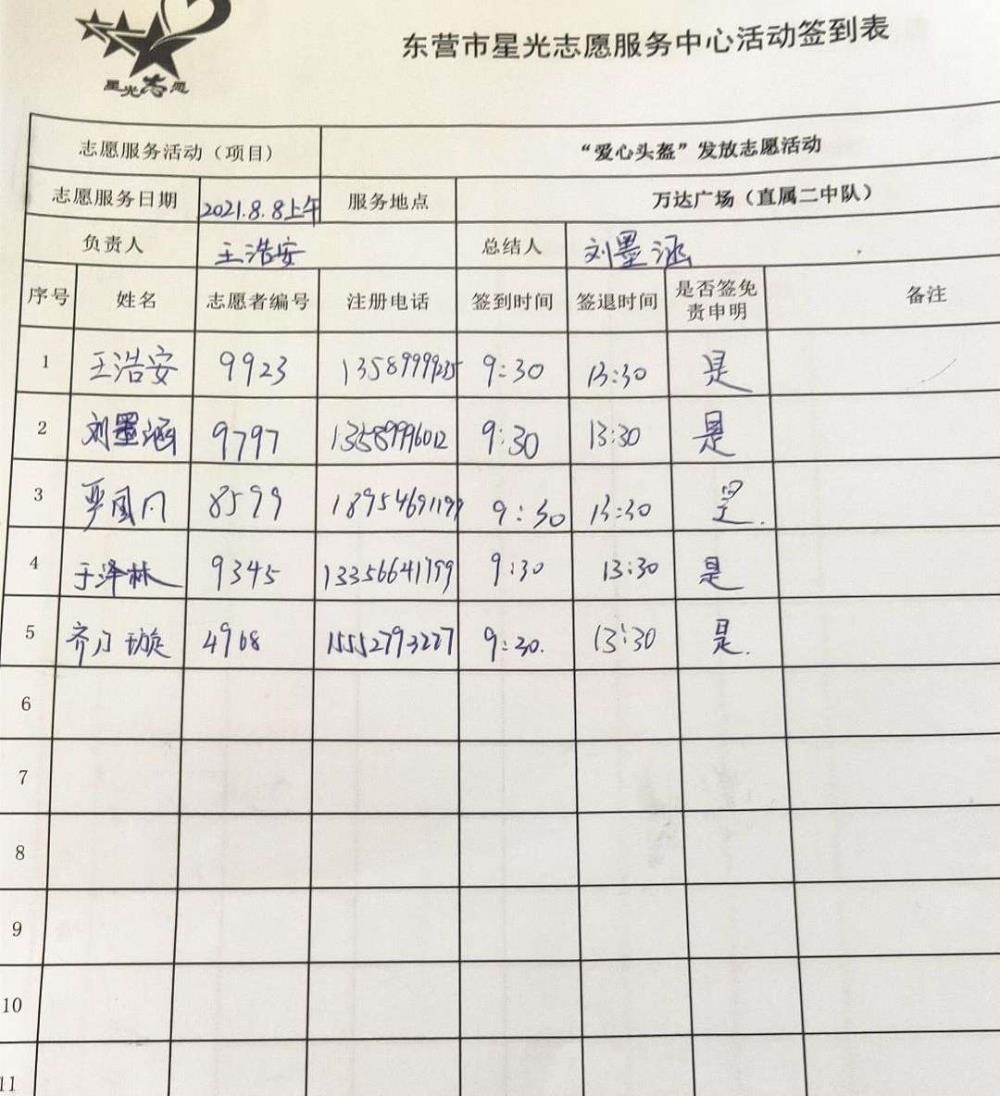 星光志愿
东营市星光志愿服务中心活动签到表
志愿服务活动（项目） “爱心头盔”发放志愿活动
志愿服务日期 2021.8.8上午 服务地点 万达广场（直属二中队）
负责人 王浩安 总结人 刘墨涵
序号 姓名 志愿者编号 注册电话 签到时间 签退时间 是否签免责申明 备注
1 王浩安 9923 13589999235 9:30 13:30 是
2 刘墨涵 9797 13589996012 9:30 13:30 是
3 8599 18954691199 9:30 13:30 是.
4 于泽林 9345 13356641799 9:30 13:30 是
5 齐乃璇 4968 15552793227 9:30. 13:30 是.
6
7
8
9
10
11